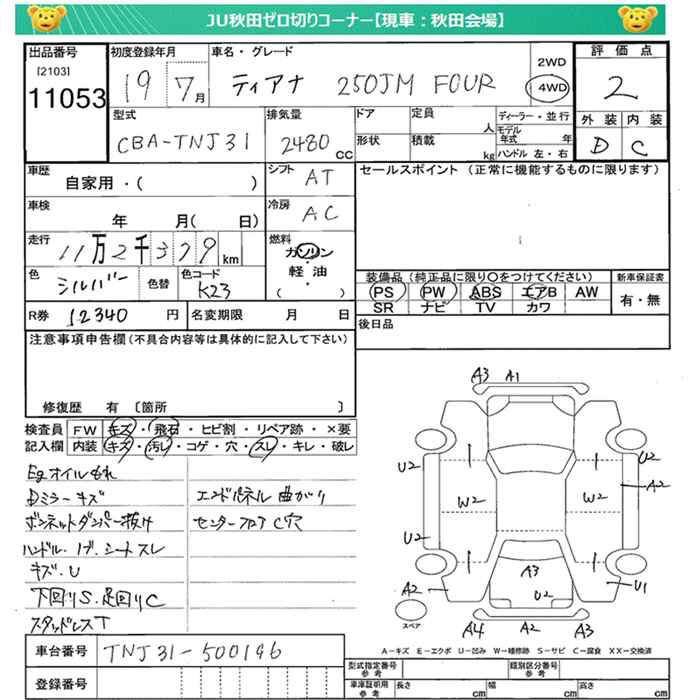 JU秋田ゼロ切りコーナー【現車：秋田会場】
出品番号
[2103]
11053
初度登録年月
19 7月
車名・グレード
ティアナ 250JM FOUR
2WD
4WD
評価点
2
外装 内装
D C
型式
CBA-TNJ31
排気量
2480 CC
ドア
形状
定員
人
積載
kg
ディーラー・並行
モデル年式 年
ハンドル 左・右
車歴
自家用・( )
シフト
AT
車検
年 月( 日)
冷房
AC
走行
11万2千379km
燃料
ガソリン
・
軽油
・
( )
色
シルバー
色替
色コード
K23
R券 12340 円
名変期限 月 日
セールスポイント (正常に機能するものに限ります)
装備品(純正品に限り〇をつけてください)
PS PW ABS エアB AW
SR ナビ TV カワ
新車保証書
有・無
後日品
注意事項申告欄(不具合内容等は具体的に記入して下さい)
修復歴 有 〔箇所 〕
検査員記入欄
FW キズ・飛石・ヒビ割・リペア跡・×要
内装 キズ・汚レ・コゲ・穴・スレ・キレ・破レ
Egオイルもれ
Dミラーキズ
ボンネットダンパー抜け
ハンドル・ノブ・シートスレ
キズ・U
下回りS・足回りC
スタッドレスT
エンドパネル曲がり
センターフロアC穴
A3 A1
U2 U2
A2
W2 W2
U2
A3
U2
A2 U1
スペア
A4 A2 A3
A-キズ E-エクボ U-凹み W-補修跡 S-サビ C-腐食 XX-交換済
車台番号 TNJ31-500196
登録番号
型式指定番号
参考
類別区分番号
参考
車庫証明用
参考
長さ cm
幅 cm
高さ cm